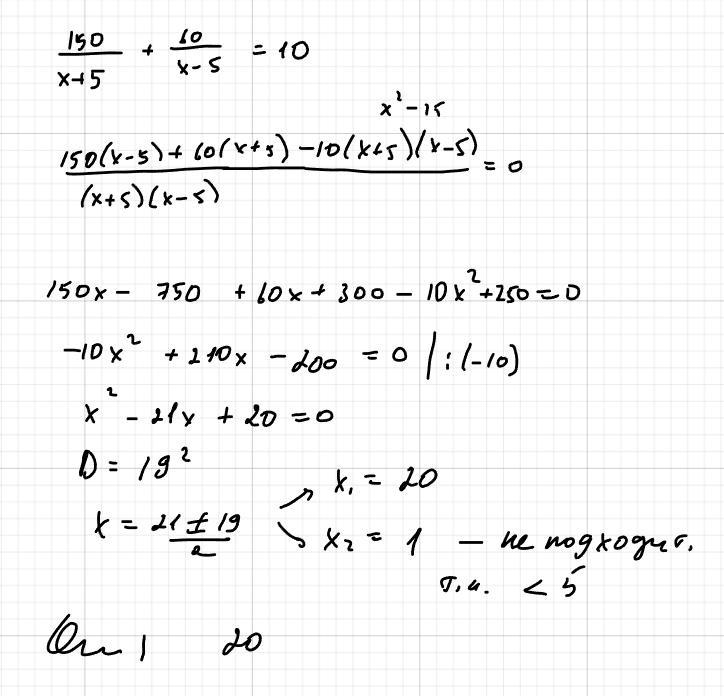 150/(x+5) + 60/(x-5) = 10
x² - 25
(150(x-5) + 60(x+5) - 10(x+5)(x-5))/((x+5)(x-5)) = 0
150x - 750 + 60x + 300 - 10x² + 250 = 0
-10x² + 210x - 200 = 0 | : (-10)
x² - 21x + 20 = 0
D = 19²
x = (21 ± 19)/2
x₁ = 20
x₂ = 1 - не подходит.
т.к. < 5
20